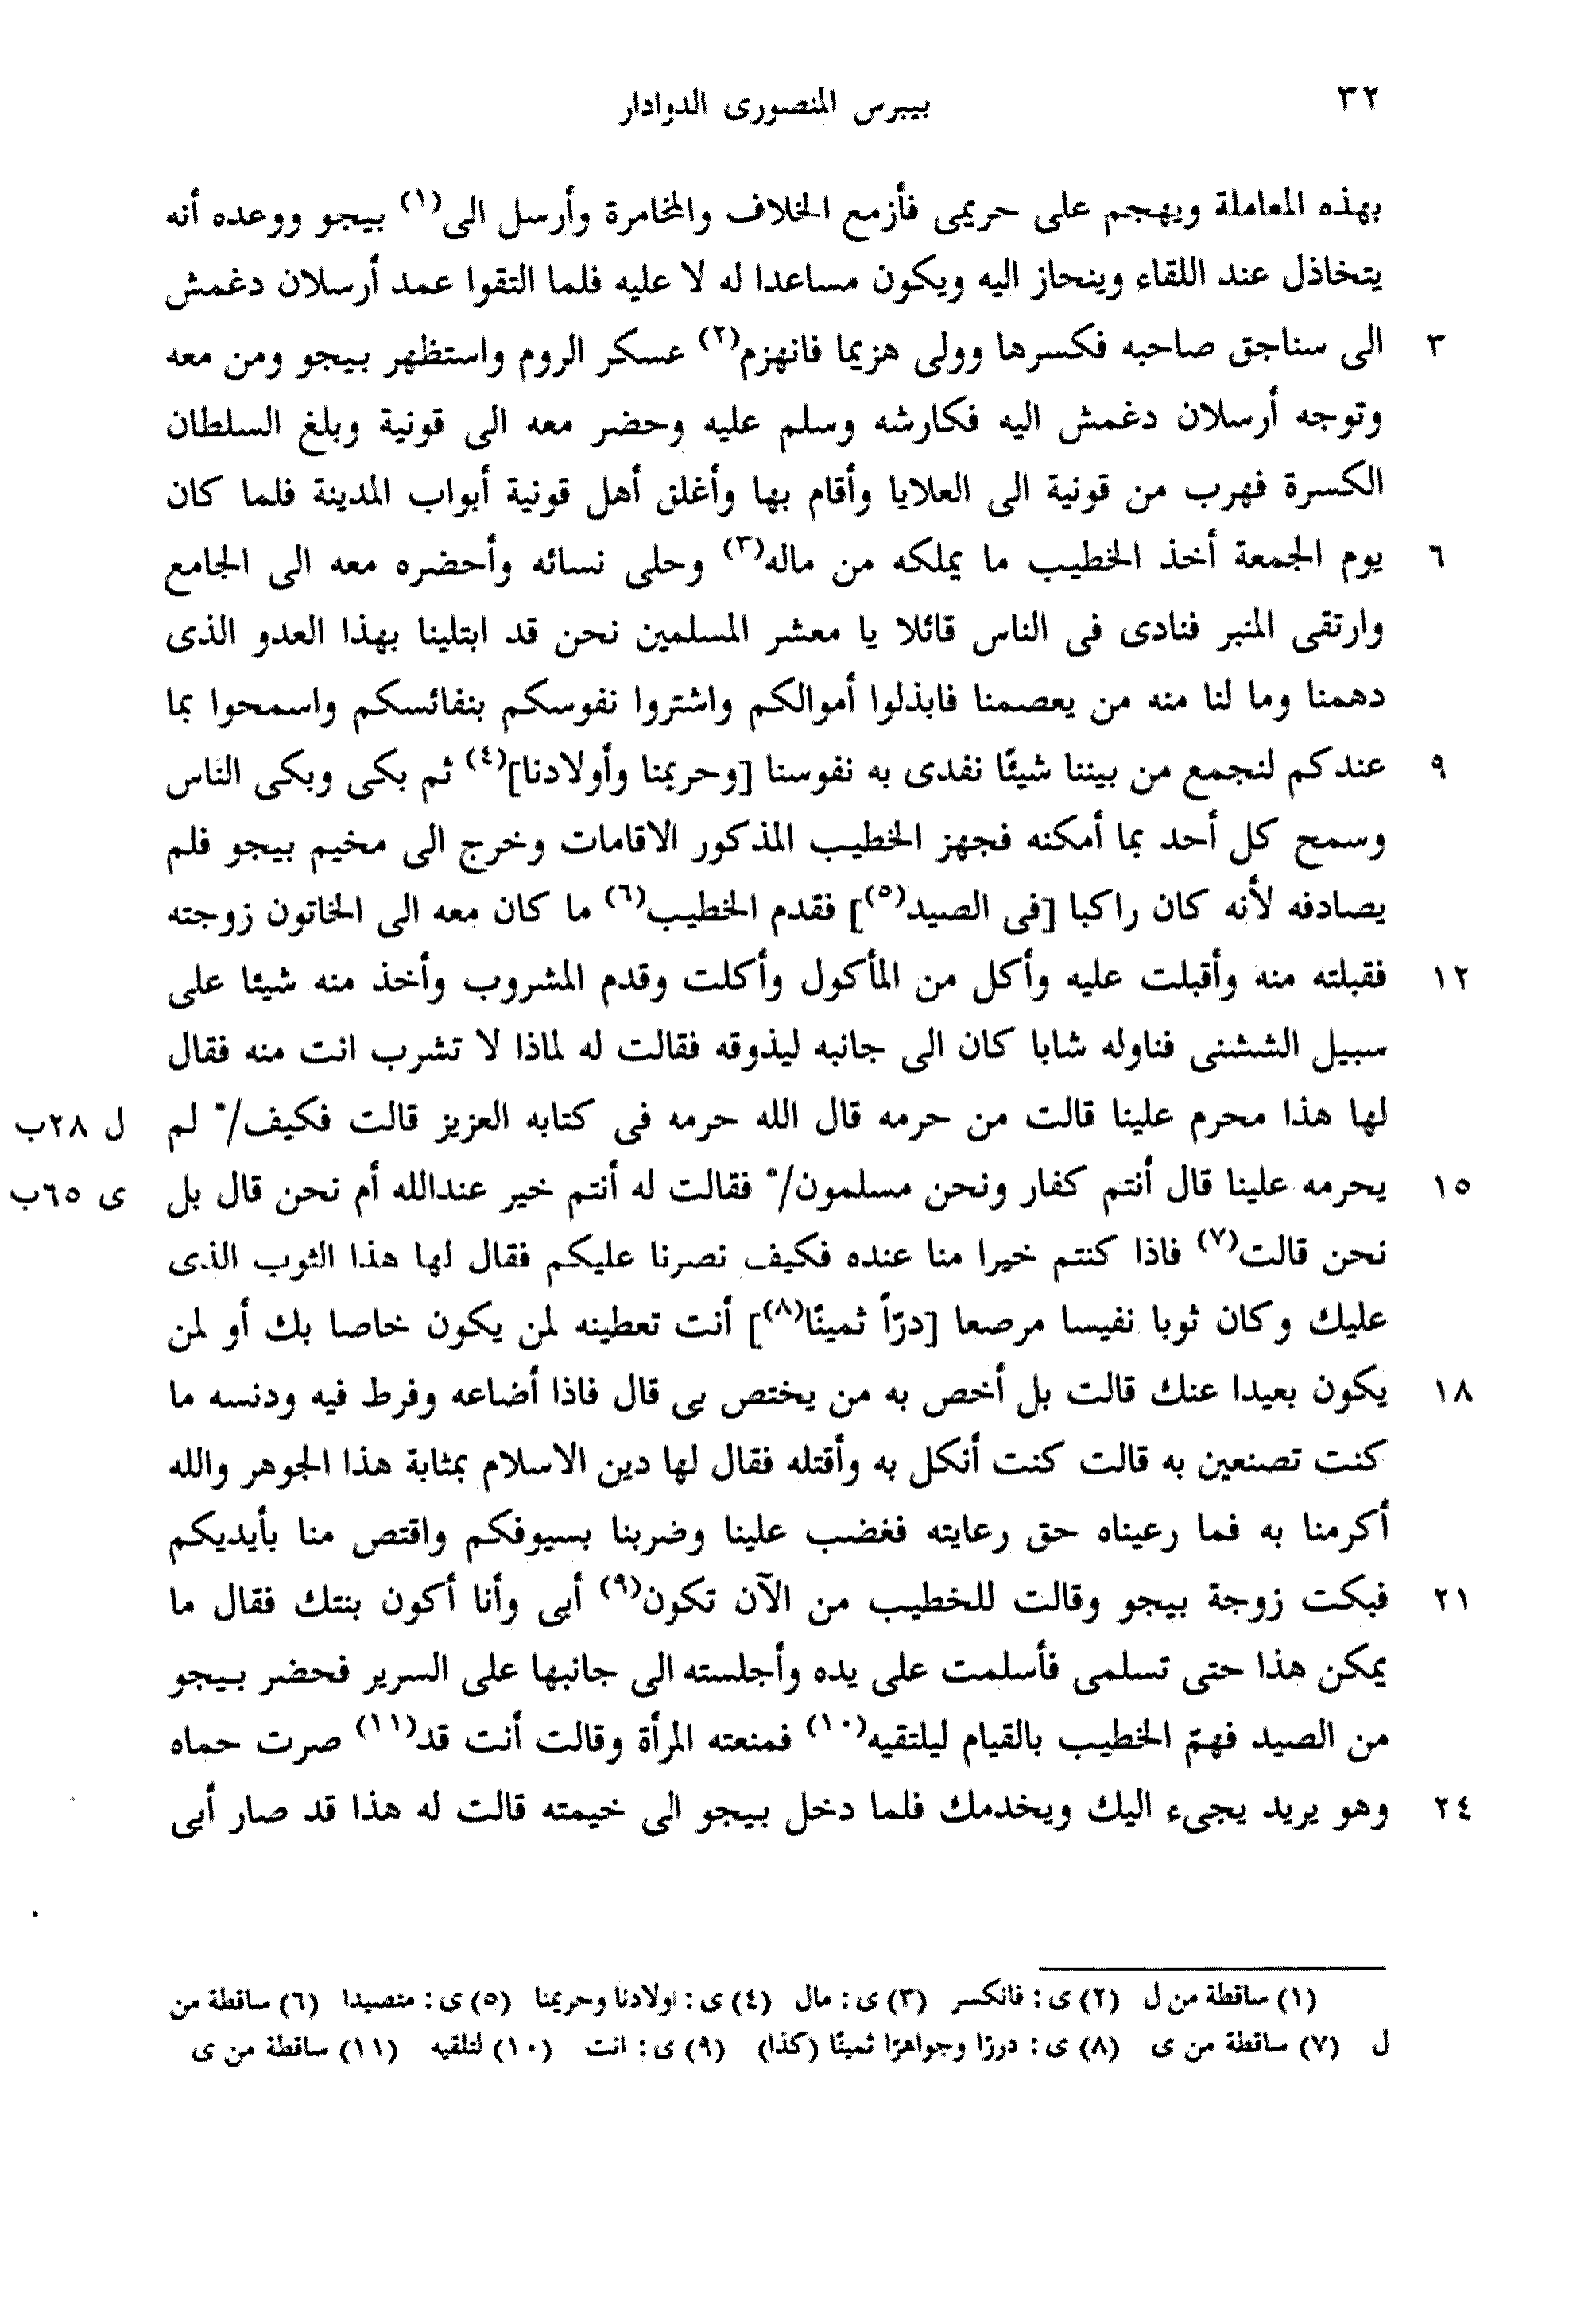 ٣٢ بيبرس المنصورى الدوادار
بهذه المعاملة ويهجم على حريمى فأزمع الخلاف والمخامرة وأرسل الى(١) بيجو ووعده أنه
يتخاذل عند اللقاء وينحاز اليه ويكون مساعدا له لا عليه فلما التقوا عمد أرسلان دغمش
٣ الى سناجق صاحبه فكسرها وولى هزيما فانهزم(٢) عسكر الروم واستظهر بيجو ومن معه
وتوجه أرسلان دغمش اليه فكارشه وسلم عليه وحضر معه الى قونية وبلغ السلطان
الكسرة فهرب من قونية الى العلايا وأقام بها وأغلق أهل قونية أبواب المدينة فلما كان
٦ يوم الجمعة أخذ الخطيب ما يملكه من ماله(٣) وحلى نسائه وأحضره معه الى الجامع
وارتقى المنبر فنادى فى الناس قائلا يا معشر المسلمين نحن قد ابتلينا بهذا العدو الذى
دهمنا وما لنا منه من يعصمنا فابذلوا أموالكم واشتروا نفوسكم بنفائسكم واسمحوا بما
٩ عندكم لنجمع من بيننا شيئًا نفدى به نفوسنا [وحريمنا وأولادنا](٤) ثم بكى وبكى الناس
وسمح كل أحد بما أمكنه فجهز الخطيب المذكور الاقامات وخرج الى مخيم بيجو فلم
يصادفه لأنه كان راكبا [فى الصيد(٥)] فقدم الخطيب(٦) ما كان معه الى الخاتون زوجته
١٢ فقبلته منه وأقبلت عليه وأكل من المأكول وأكلت وقدم المشروب وأخذ منه شيئا على
سبيل الششنى فناوله شابا كان الى جانبه ليذوقه فقالت له لماذا لا تشرب انت منه فقال
لها هذا محرم علينا قالت من حرمه قال الله حرمه فى كتابه العزيز قالت فكيف/* لم ل ٢٨ب
١٥ يحرمه علينا قال أنتم كفار ونحن مسلمون/* فقالت له أنتم خير عندالله أم نحن قال بل ى ٦٥ب
نحن قالت(٧) فاذا كنتم خيرا منا عنده فكيف نصرنا عليكم فقال لها هذا الثوب الذى
عليك وكان ثوبا نفيسا مرصعا [درّاً ثمينًا(٨)] أنت تعطينه لمن يكون خاصا بك أو لمن
١٨ يكون بعيدا عنك قالت بل أخص به من يختص بى قال فاذا أضاعه وفرط فيه ودنسه ما
كنت تصنعين به قالت كنت أنكل به وأقتله فقال لها دين الاسلام بمثابة هذا الجوهر والله
أكرمنا به فما رعيناه حق رعايته فغضب علينا وضربنا بسيوفكم واقتص منا بأيديكم
٢١ فبكت زوجة بيجو وقالت للخطيب من الآن تكون(٩) أبى وأنا أكون بنتك فقال ما
يمكن هذا حتى تسلمى فأسلمت على يده وأجلسته الى جانبها على السرير فحضر بيجو
من الصيد فهمّ الخطيب بالقيام ليلتقيه(١٠) فمنعته المرأة وقالت أنت قد(١١) صرت حماه
٢٤ وهو يريد يجىء اليك ويخدمك فلما دخل بيجو الى خيمته قالت له هذا قد صار أبى
(١) ساقطة من ل (٢) ى : فانكسر (٣) ى : مال (٤) ى : اولادنا وحريمنا (٥) ى : متصيدا (٦) ساقطة من
ل (٧) ساقطة من ى (٨) ى : دررًا وجواهرًا ثمينًا (كذا) (٩) ى : انت (١٠) لتلقيه (١١) ساقطة من ى